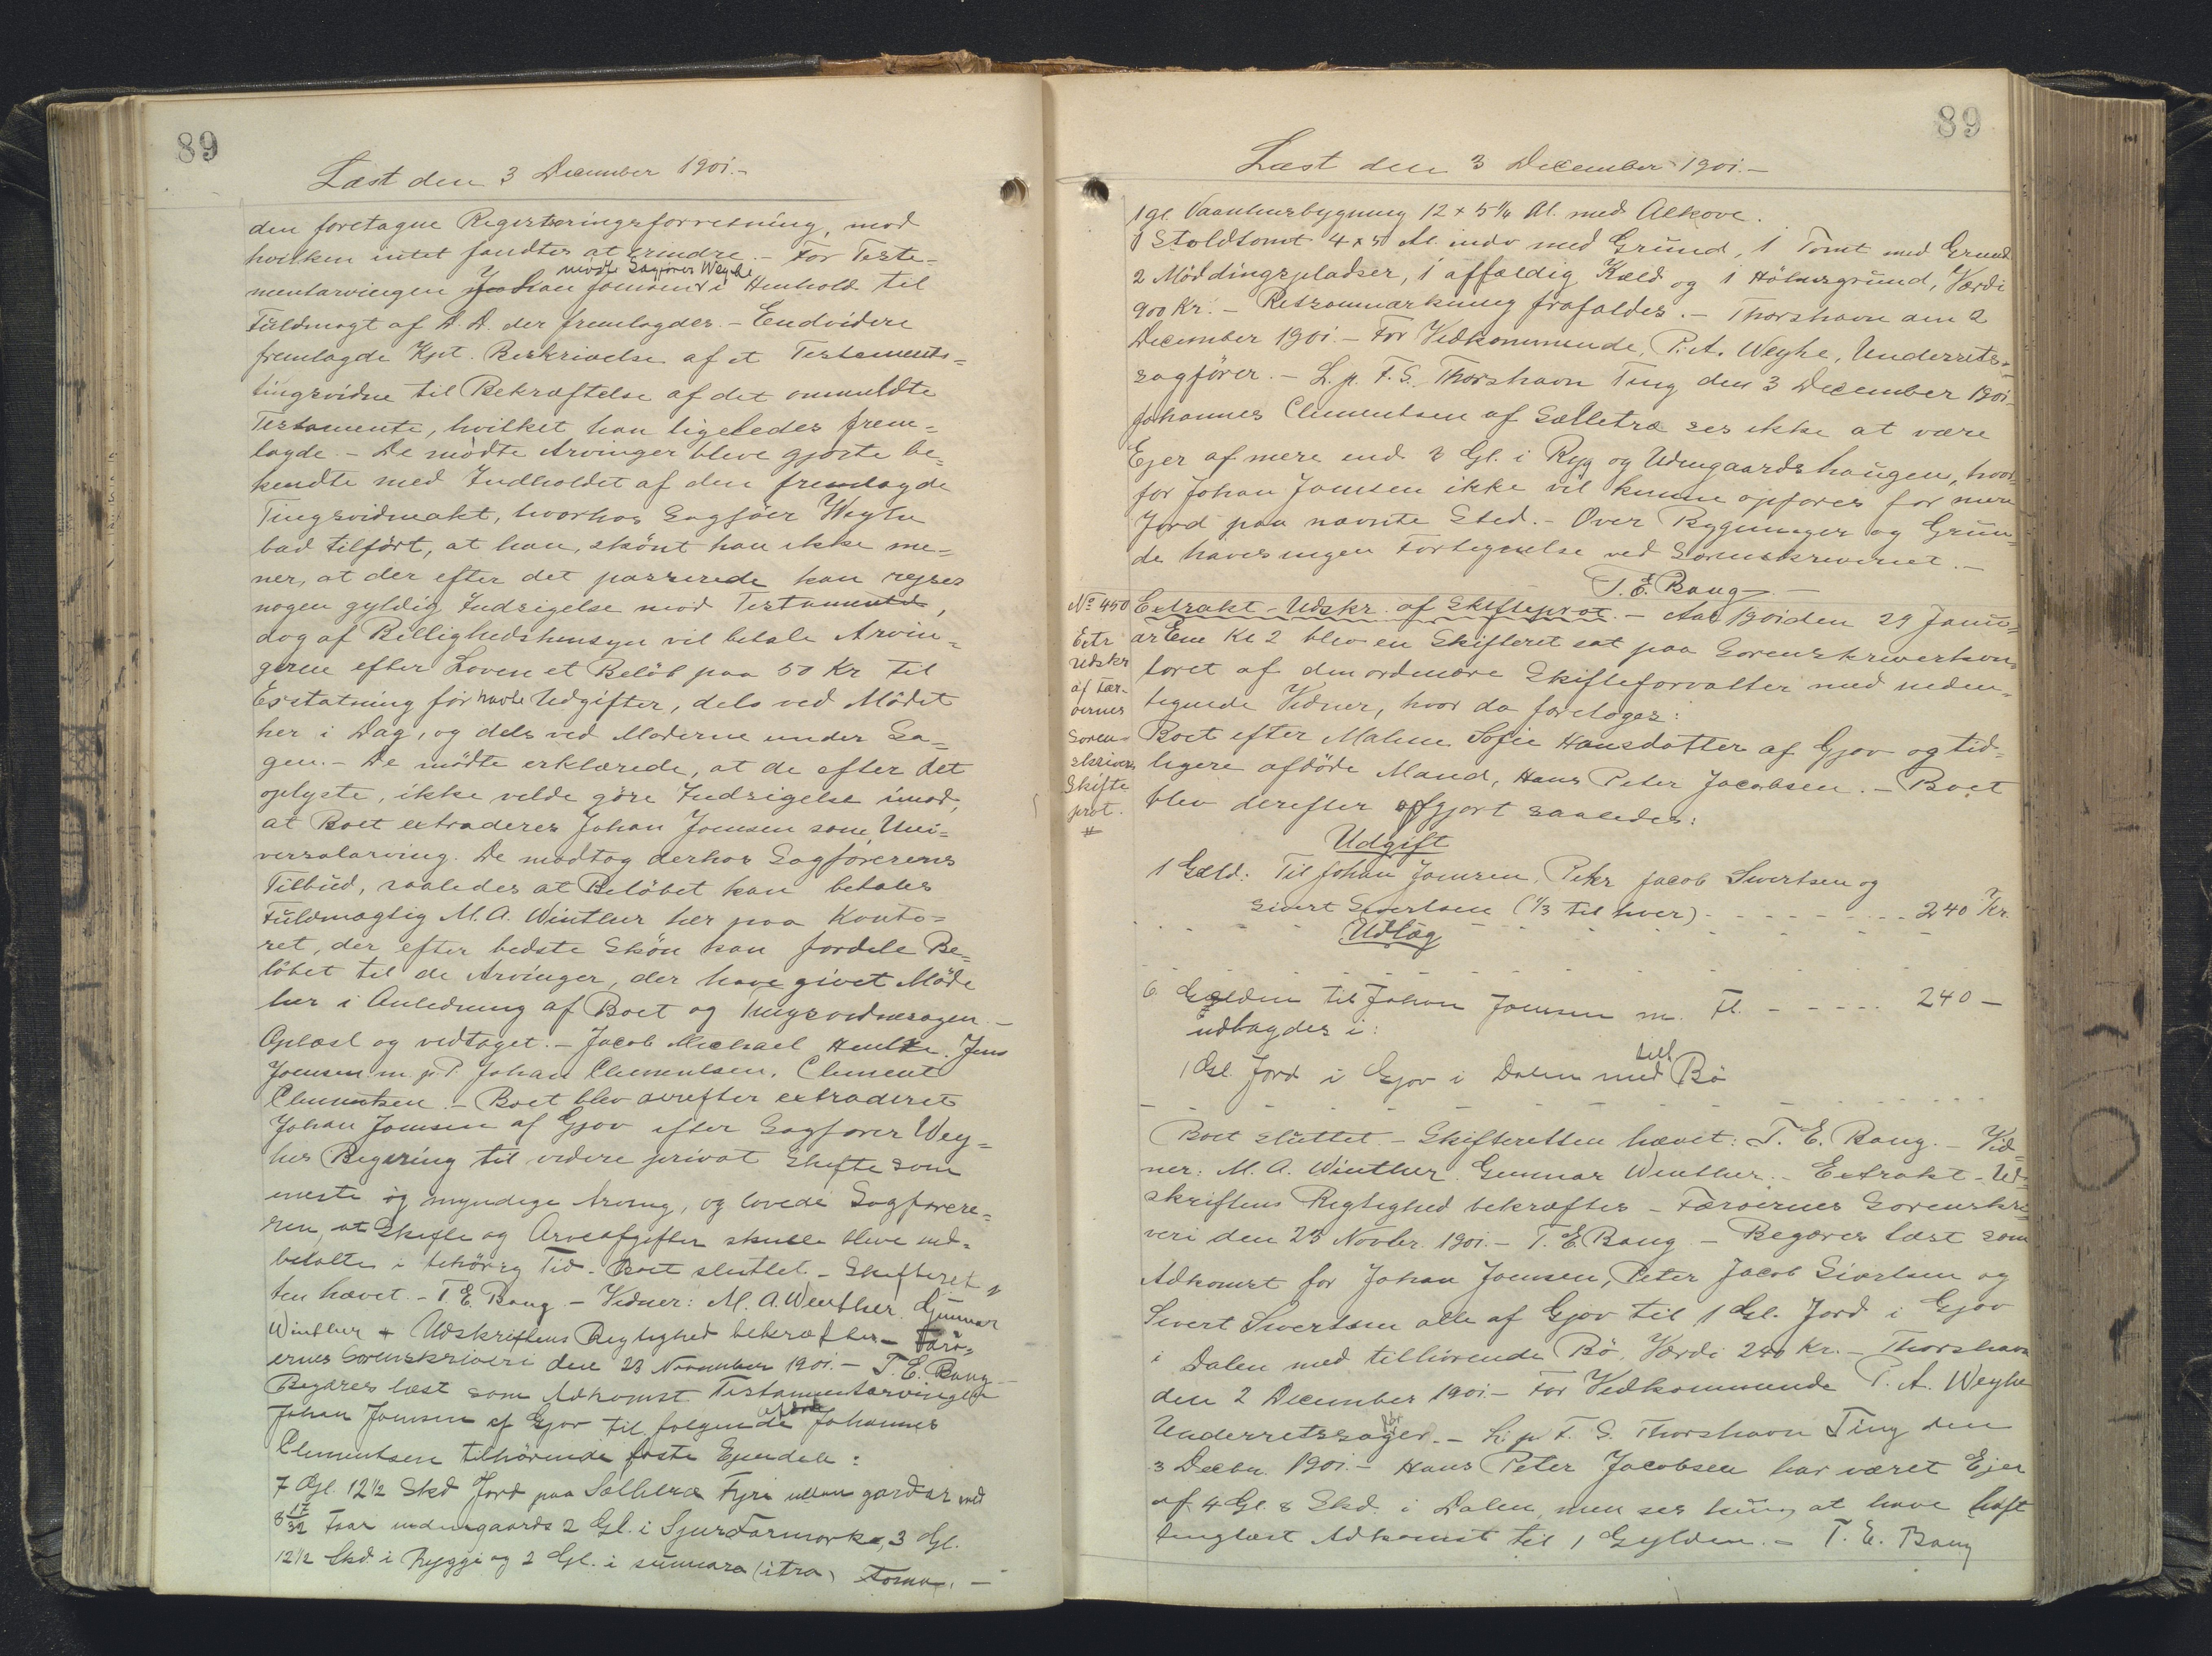 89
Læst den 3 December 1901.-
den foretagne Registreringsforretning, mod
hvilken intet fandtes at erindre. - For Teste=
mentarvingen Johan Joensen mødte Sagfører Weyhe i Henhold til
Fuldmagt af D. D. der fremlagdes. - Endvidere
fremlagde Kpt. Beskrivelse af et Testaments=
tingsvidne til Bekræftelse af det ommeldte
Testamente, hvilket han ligeledes frem=
lagde. - De mødte Arvinger bleve gjorte be=
kendte med Indholdet af den fremlagde
Tingsvidneakt, hvorhos Sagfører Weyhe
bad tilført, at han, skönt han ikke me=
ner, at der efter det passerede kan rejses
nogen gyldig Indsigelse mod Testamentet,
dog af Billighedshensyn vil betale Arvin=
gerne efter Loven et Beløb paa 50 Kr til
Erstatning for havte Udgifter, dels ved Mødet
her i Dag, og dels ved Møderne under Sa=
gen. - De mødte erklærede, at de efter det
oplyste, ikke vilde göre Indsigelse imod,
at Boet extraderes Johan Joensen som Uni=
versalarving. De modtog derhos Sagførerens
Tilbud, saaledes at Beløbet kan betales
Fuldmægtig M. A. Winther her paa Konto=
ret, der efter bedste Skön kan fordele Be=
løbet til de Arvinger, der have givet Møde
her i Anledning af Boet og Tingsvidnesagen. -
Oplæst og vedtaget. - Jacob Michael Hentze. Jens
Joensen m. p. P. Johan Clementsen. Clement
Clementsen. - Boet blev derefter extraderet
Johan Joensen af Gjov efter Sagfører Wey=
hes Begæring til videre privat Skifte som
eneste og myndige Arving, og lovede Sagførere=
ren, at Skifte og Arveafgifter skulle blive ind=
betalte i behørig Tid. - Boet sluttet. - Skifteret
ten hævet. - T. E. Bang. - Vidner: M. A. Winther. Gunnar
Winther + Udskriftens Rigtighed bekræftes. - Færö=
ernes Sorenskriveri den 23 November 1901. - T. E. Bang. -
Begæres læst som Adkomst Testamentarvingen
Johan Joensen af Gjov til følgende afdøde Johannes
Clementsen tilhörende faste Ejendele:
7 Gl. 12 1/2 Skd Jord paa Selletræ Fyri uttan gardar med
8 17/32 Faar indengaards 2 Gl. i Sjurdarmorka, 3 Gl.
12 1/2 Skd. i Ryggi og 2 Gl. i sunnara (itra)
89
Læst den 3 December 1901.-
1 gl. Vaanhusbygning 12 x 5 1/4 Al. med Alkove.
1 Stoldtomt 4 x 5 Al. indv med Grund, 1 Tomt med Grund
2 Möddingspladser, 1 affældig Kæld og 1 Hölnsgrund, Værdi
900 Kr. - Retsanmærkning frafaldes. - Thorshavn den 2
December 1901. - For Vedkommende, P. A. Weyhe, Underrets-
sagfører. - L. p. F. S. Thorshavn Ting den 3 December 1901-
Johannes Clementsen af Selletræ ses ikke at være
Ejer af mere end 3 Gl. i Ryg og Udengaardshaugen, hvor=
for Johan Joensen ikke vil kunne opføres for mere
Jord paa nævnte Sted. - Over Bygninger og Grun=
de haves ingen Fortegnelse ved Sorenskriveriet. -
T. E. Bang. -
No 450
Extr
Udskr
af Fær-
øernes
Soren-
skrivers
Skifte
prot.
Extrakt - Udskr. af Skifteprot. - Aar 1901 den 29 Janu=
ar Em Kl 2 blev en Skifteret sat paa Sorenskriverkon=
toret af den ordinære Skifteforvalter med neden=
tegnede Vidner, hvor da foretoges:
Boet efter Malene Sofie Hansdatter af Gjov og tid=
ligere afdöde Mand, Hans Peter Jacobsen. - Boet
blev derefter opgjort saaledes:
Udgift
1 Gæld: Til Johan Joensen, Peter Jacob Sivertsen og
Sivert Sivertsen (1/3 til hver) - - - - - - - 240 Kr.
Udlæg
6 Gælden til Johan Joensen m. Fl. - - - - - 240 -
udlagdes i:
1 Gl. Jord i Gjov i Dalen med tilh Bö
Boet sluttet. - Skifteretten hævet: T. E. Bang. - Vid=
ner: M. A. Winther. Gunnar Winther. - Extrakt - Ud=
skriftens Rigtighed bekræftes - Færøernes Sorenskri=
veri den 23 Novbr. 1901. - T. E. Bang. - Begæres læst som
Adkomst for Johan Joensen, Peter Jacob Sivertsen og
Sivert Sivertsen alle af Gjov til 1 Gl. Jord i Gjov
i Dalen med tilhörende Bö, Værdi 240 Kr. - Thorshavn
den 2 December 1901. - For Vedkommende P. A. Weyhe
Underretssagfører. - L. p. F. S. Thorshavn Ting den
3 Decbr. 1901. - Hans Peter Jacobsen har været Ejer
af 4 Gl. 8 Skd. i Dalen, men ses kung at have haft
tinglæst Adkomst til 1 Gylden. - T. E. Bang